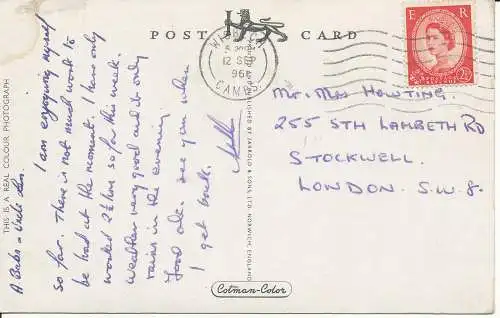 POST CARD
E R
POSTAGE REVENUE
2½D
WISBECH
12 SEP
196
CAMBS
A Babs & Uncle Les.
I am enjoying myself
so far. There is not much work to
be had at the moment. I have only
worked 2½ hrs so far this week.
Weather very good and it only
rains in the evening.
Food ok. See you when
I get back.
Mr. Mrs Howting.
255 STH LAMBETH RD
STOCKWELL.
LONDON. S.W.8.
THIS IS A REAL COLOUR PHOTOGRAPH
PUBLISHED BY JARROLD & SONS LTD., NORWICH, ENGLAND
Cotman-Color